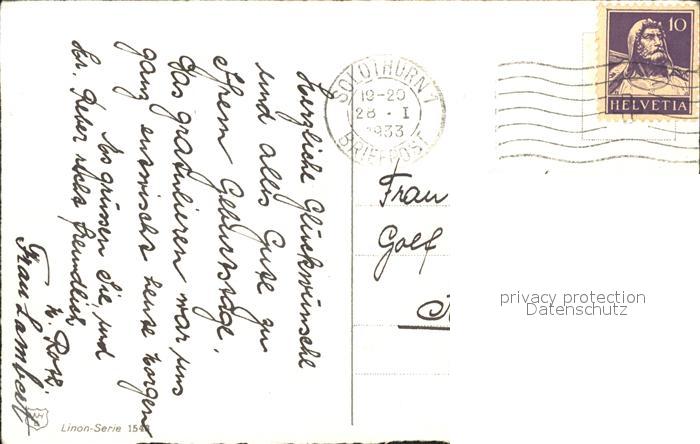 Herzliche Glückwünsche
und alles Gute zu
Ihrem Geburtstage.
Das gratulieren war uns
ganz entwischt heute Morgen
Es grüssen Sie und
Hr. Peter recht freundlich
H. Roth
Frau Lambert
SOLOTHURN 1
19-20
28 · I
1933
BRIEFPOST
10
HELVETIA
Frau
Golf
privacy protection
Datenschutz
Linon-Serie